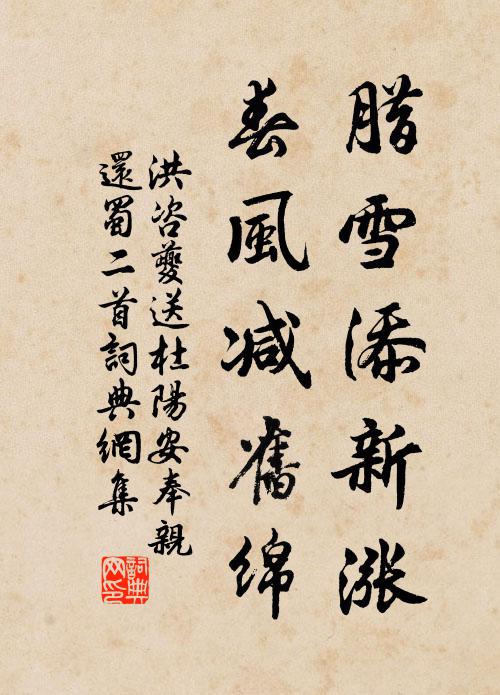 腊雪添新涨
春風减舊绵
洪咨夔送杜陽安奉親
還蜀二首詞典網集
詞典网印